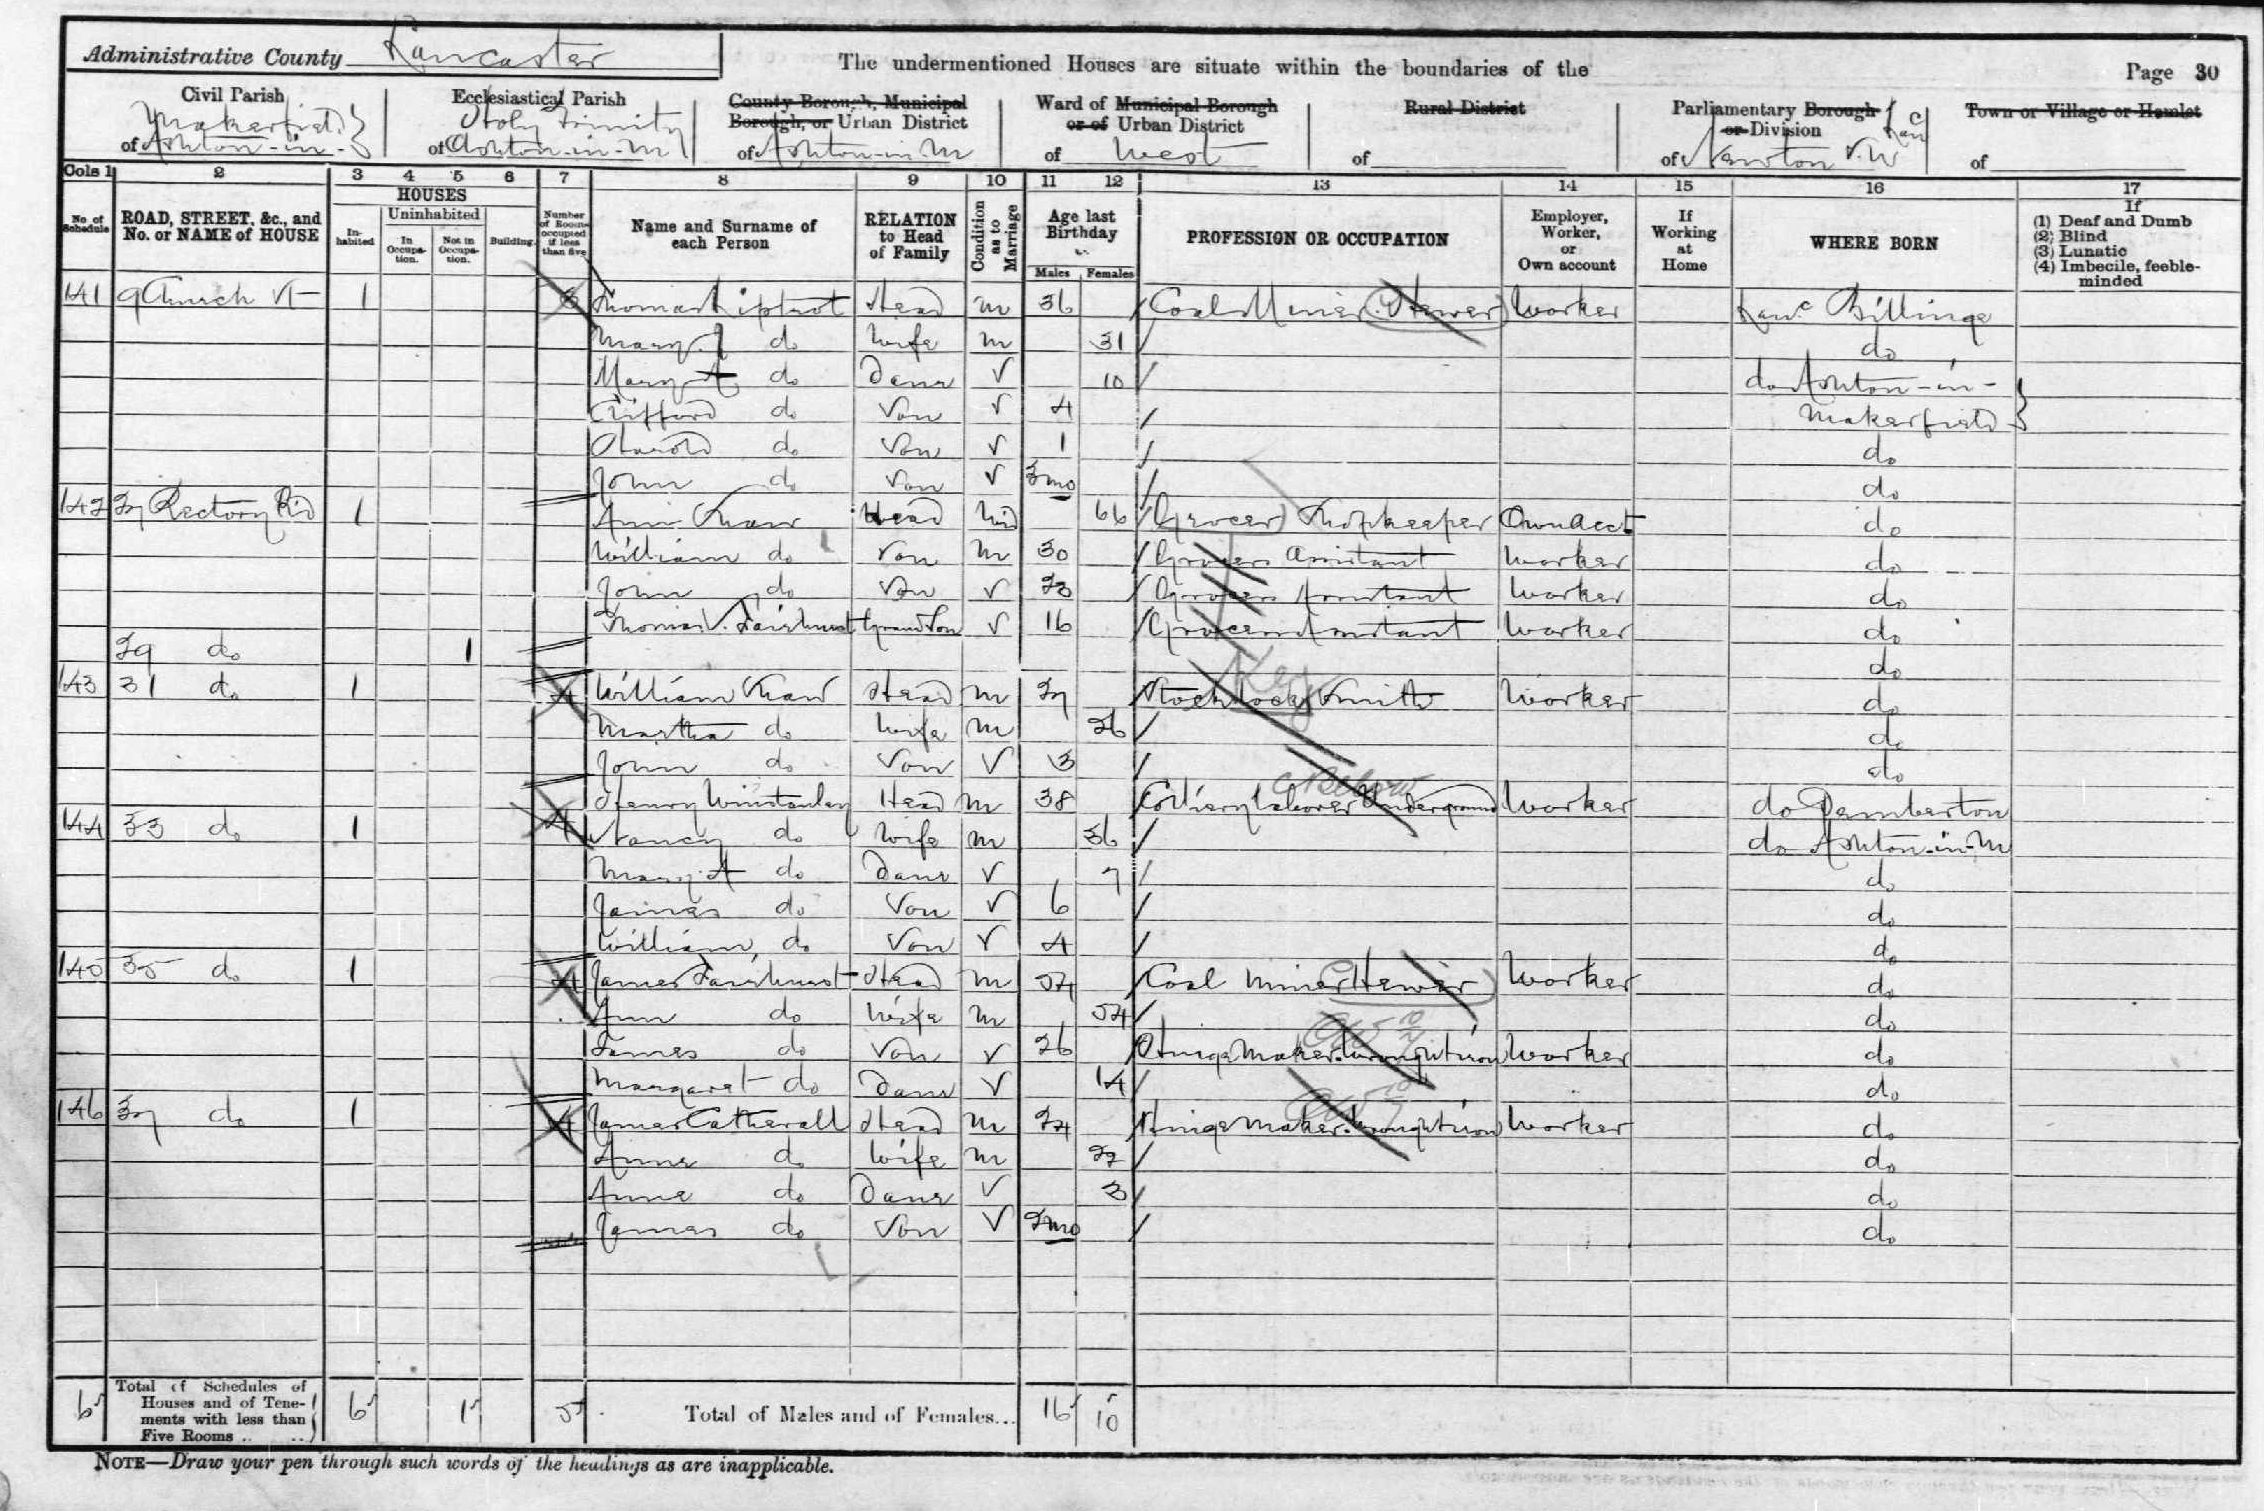 Administrative County Lancaster
The undermentioned Houses are situate within the boundaries of the
Page 30
Civil Parish of Ashton-in-Makerfield
Ecclesiastical Parish of Holy Trinity Ashton-in-M
County Borough, Municipal Borough, or Urban District of Ashton-in-M
Ward of Municipal Borough or of Urban District of West
Rural District of
Parliamentary Borough or Division of Newton S.W Lanc
Town or Village or Hamlet of
Cols 1 2 3 4 5 6 7 8 9 10 11 12 13 14 15 16 17
No of Schedule
ROAD, STREET, &c., and No. or NAME of HOUSE
HOUSES
Inhabited
Uninhabited
In Occupation.
Not in Occupation.
Building
Number of Rooms occupied if less than five
Name and Surname of each Person
RELATION to Head of Family
Condition as to Marriage
Age last Birthday
Males Females
PROFESSION OR OCCUPATION
Employer, Worker, or Own account
If Working at Home
WHERE BORN
If
(1) Deaf and Dumb
(2) Blind
(3) Lunatic
(4) Imbecile, feeble-minded
141 9 Church St 1 3 Thomas Liptrot Head M 36 Coal Miner (Hewer) Worker Lanc Billinge
Mary J do Wife M 31 do
Mary A do Daur S 10 do Ashton-in-
Clifford do Son S 4 Makerfield
Harold do Son S 1 do
John do Son S 3mo do
142 27 Rectory Rd 1 Ann Shaw Head Wid 66 (Grocer) Shopkeeper Own Acct do
William do Son M 30 Grocers Assistant Worker do
John do Son S 23 Grocers Assistant Worker do
Thomas S. Fairhurst GrandSon S 16 Grocers Assistant Worker do
29 do 1 do
143 31 do 1 4 William Shaw Head M 27 Stock lock Smith Worker do
Key
Martha do Wife M 26 do
John do Son S 3 do
Henry Winstanley Head M 38 Colliery Laborer Underground Worker do Pemberton
144 33 do 1 4 Nancy do Wife M 36 do Ashton-in-M
Mary A do Daur S 7 do
James do Son S 6 do
William do Son S 4 do
145 35 do 1 4 James Fairhurst Head M 54 Coal Miner (Hewer) Worker do
Ann do Wife M 54 do
James do Son S 26 Hinge Maker. Wrought iron Worker do
Margaret do Daur S 14 do
146 37 do 1 4 James Catherall Head M 24 Hinge Maker. Wrought iron Worker do
Anne do Wife M 22 do
Anne do Daur S 3 do
James do Son S 2mo do
6 Total of Schedules of Houses and of Tenements with less than Five Rooms .. .. 6 1 5 Total of Males and of Females... 16 10
NOTE—Draw your pen through such words of the headings as are inapplicable.